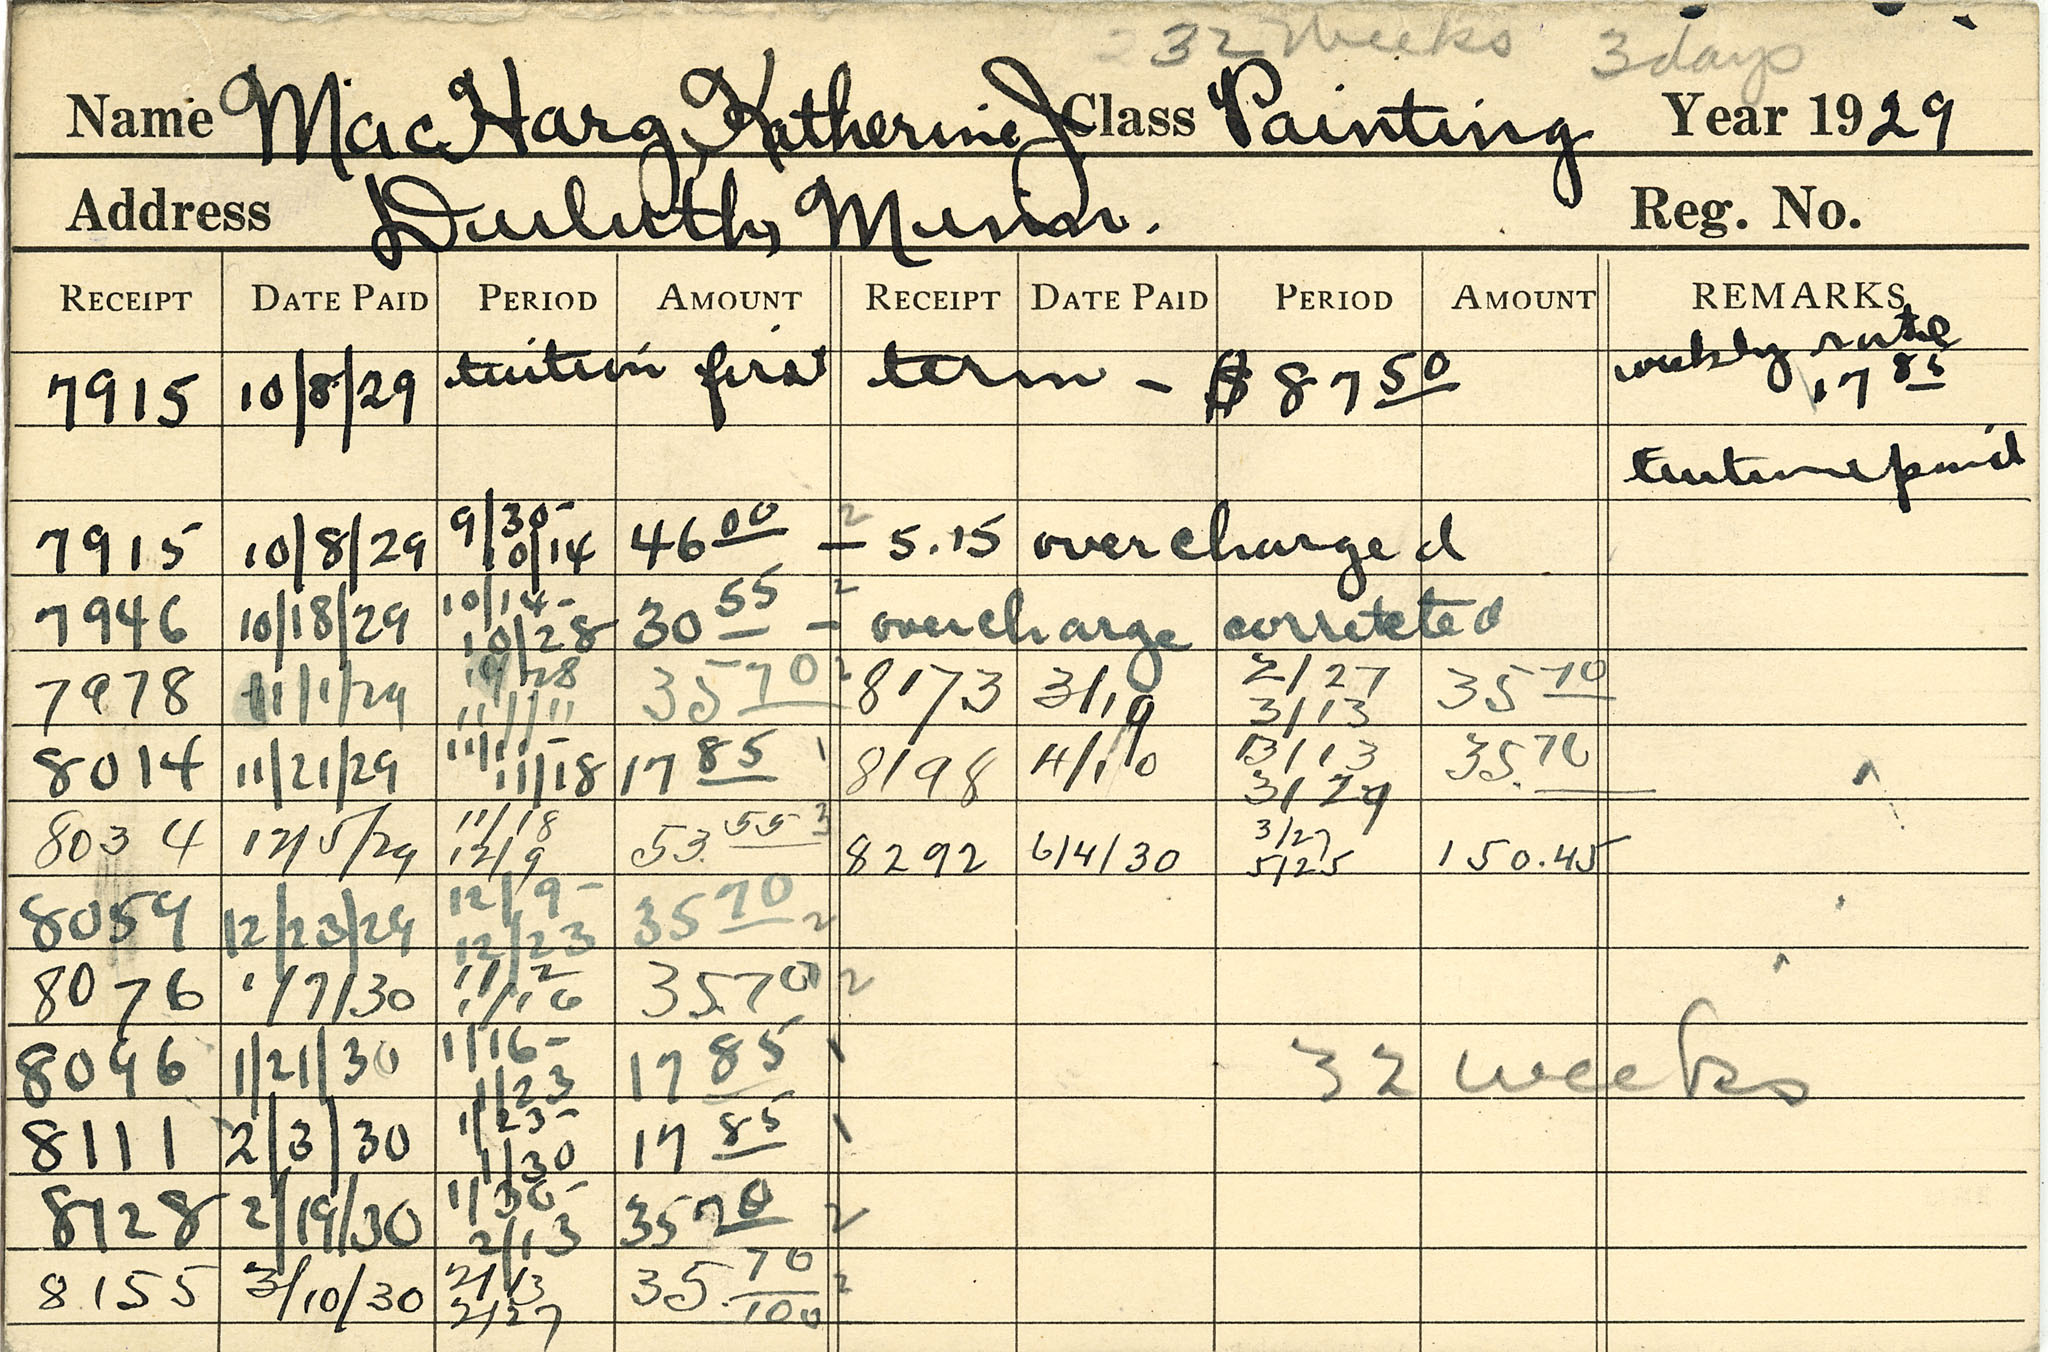 232 Weeks 3 days
Name MacHarg, Katherine J. Class Painting Year 1929
Address Duluth, Minn. Reg. No.
RECEIPT DATE PAID PERIOD AMOUNT RECEIPT DATE PAID PERIOD AMOUNT REMARKS
7915 10/8/29 tuition first term - $87 50 weekly rate 17 85
tuition paid
7915 10/8/29 9/30- 10/14 46 00 2 - 5.15 overcharged
7946 10/18/29 10/14- 10/28 30 55 2 - overcharge correteted
7978 11/1/29 10/28 11/11 35 70 2 8173 3/19 2/27 3/13 35 70
8014 11/21/29 11/11- 11/18 17 85 1 8198 4/10 3/13 3/27 35.70
8034 12/5/29 11/18 12/9 53.55 3 8292 6/4/30 3/27 5/25 150.45
8059 12/23/29 12/9- 12/23 35 70 2
8076 1/7/30 1/2 1/16 35.70 2
8096 1/21/30 1/16- 1/23 17 85 1 32 weeks
8111 2/3/30 1/23- 1/30 17 85 1
8128 2/19/30 1/30- 2/13 35 70 2
8155 3/10/30 2/13 2/27 35.70/100 2